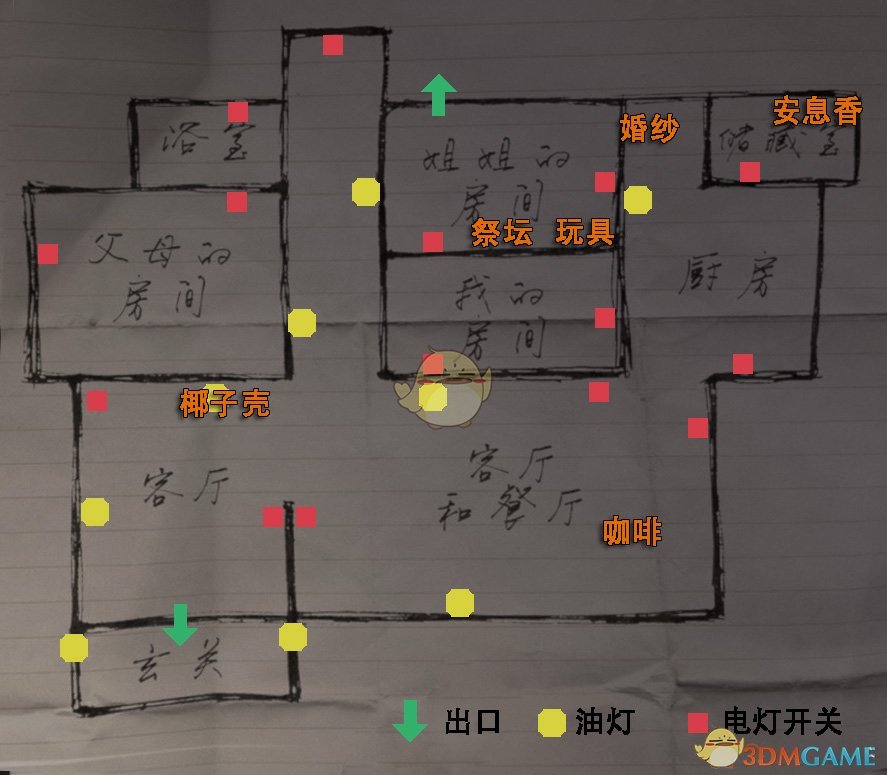 安息香
婚纱
浴室
储藏室
姐姐的
房间
祭坛 玩具
父母的
房间
厨房
我的
房间
椰子壳
客厅
客厅
和餐厅
咖啡
玄关
出口 油灯 电灯开关
3DMGAME